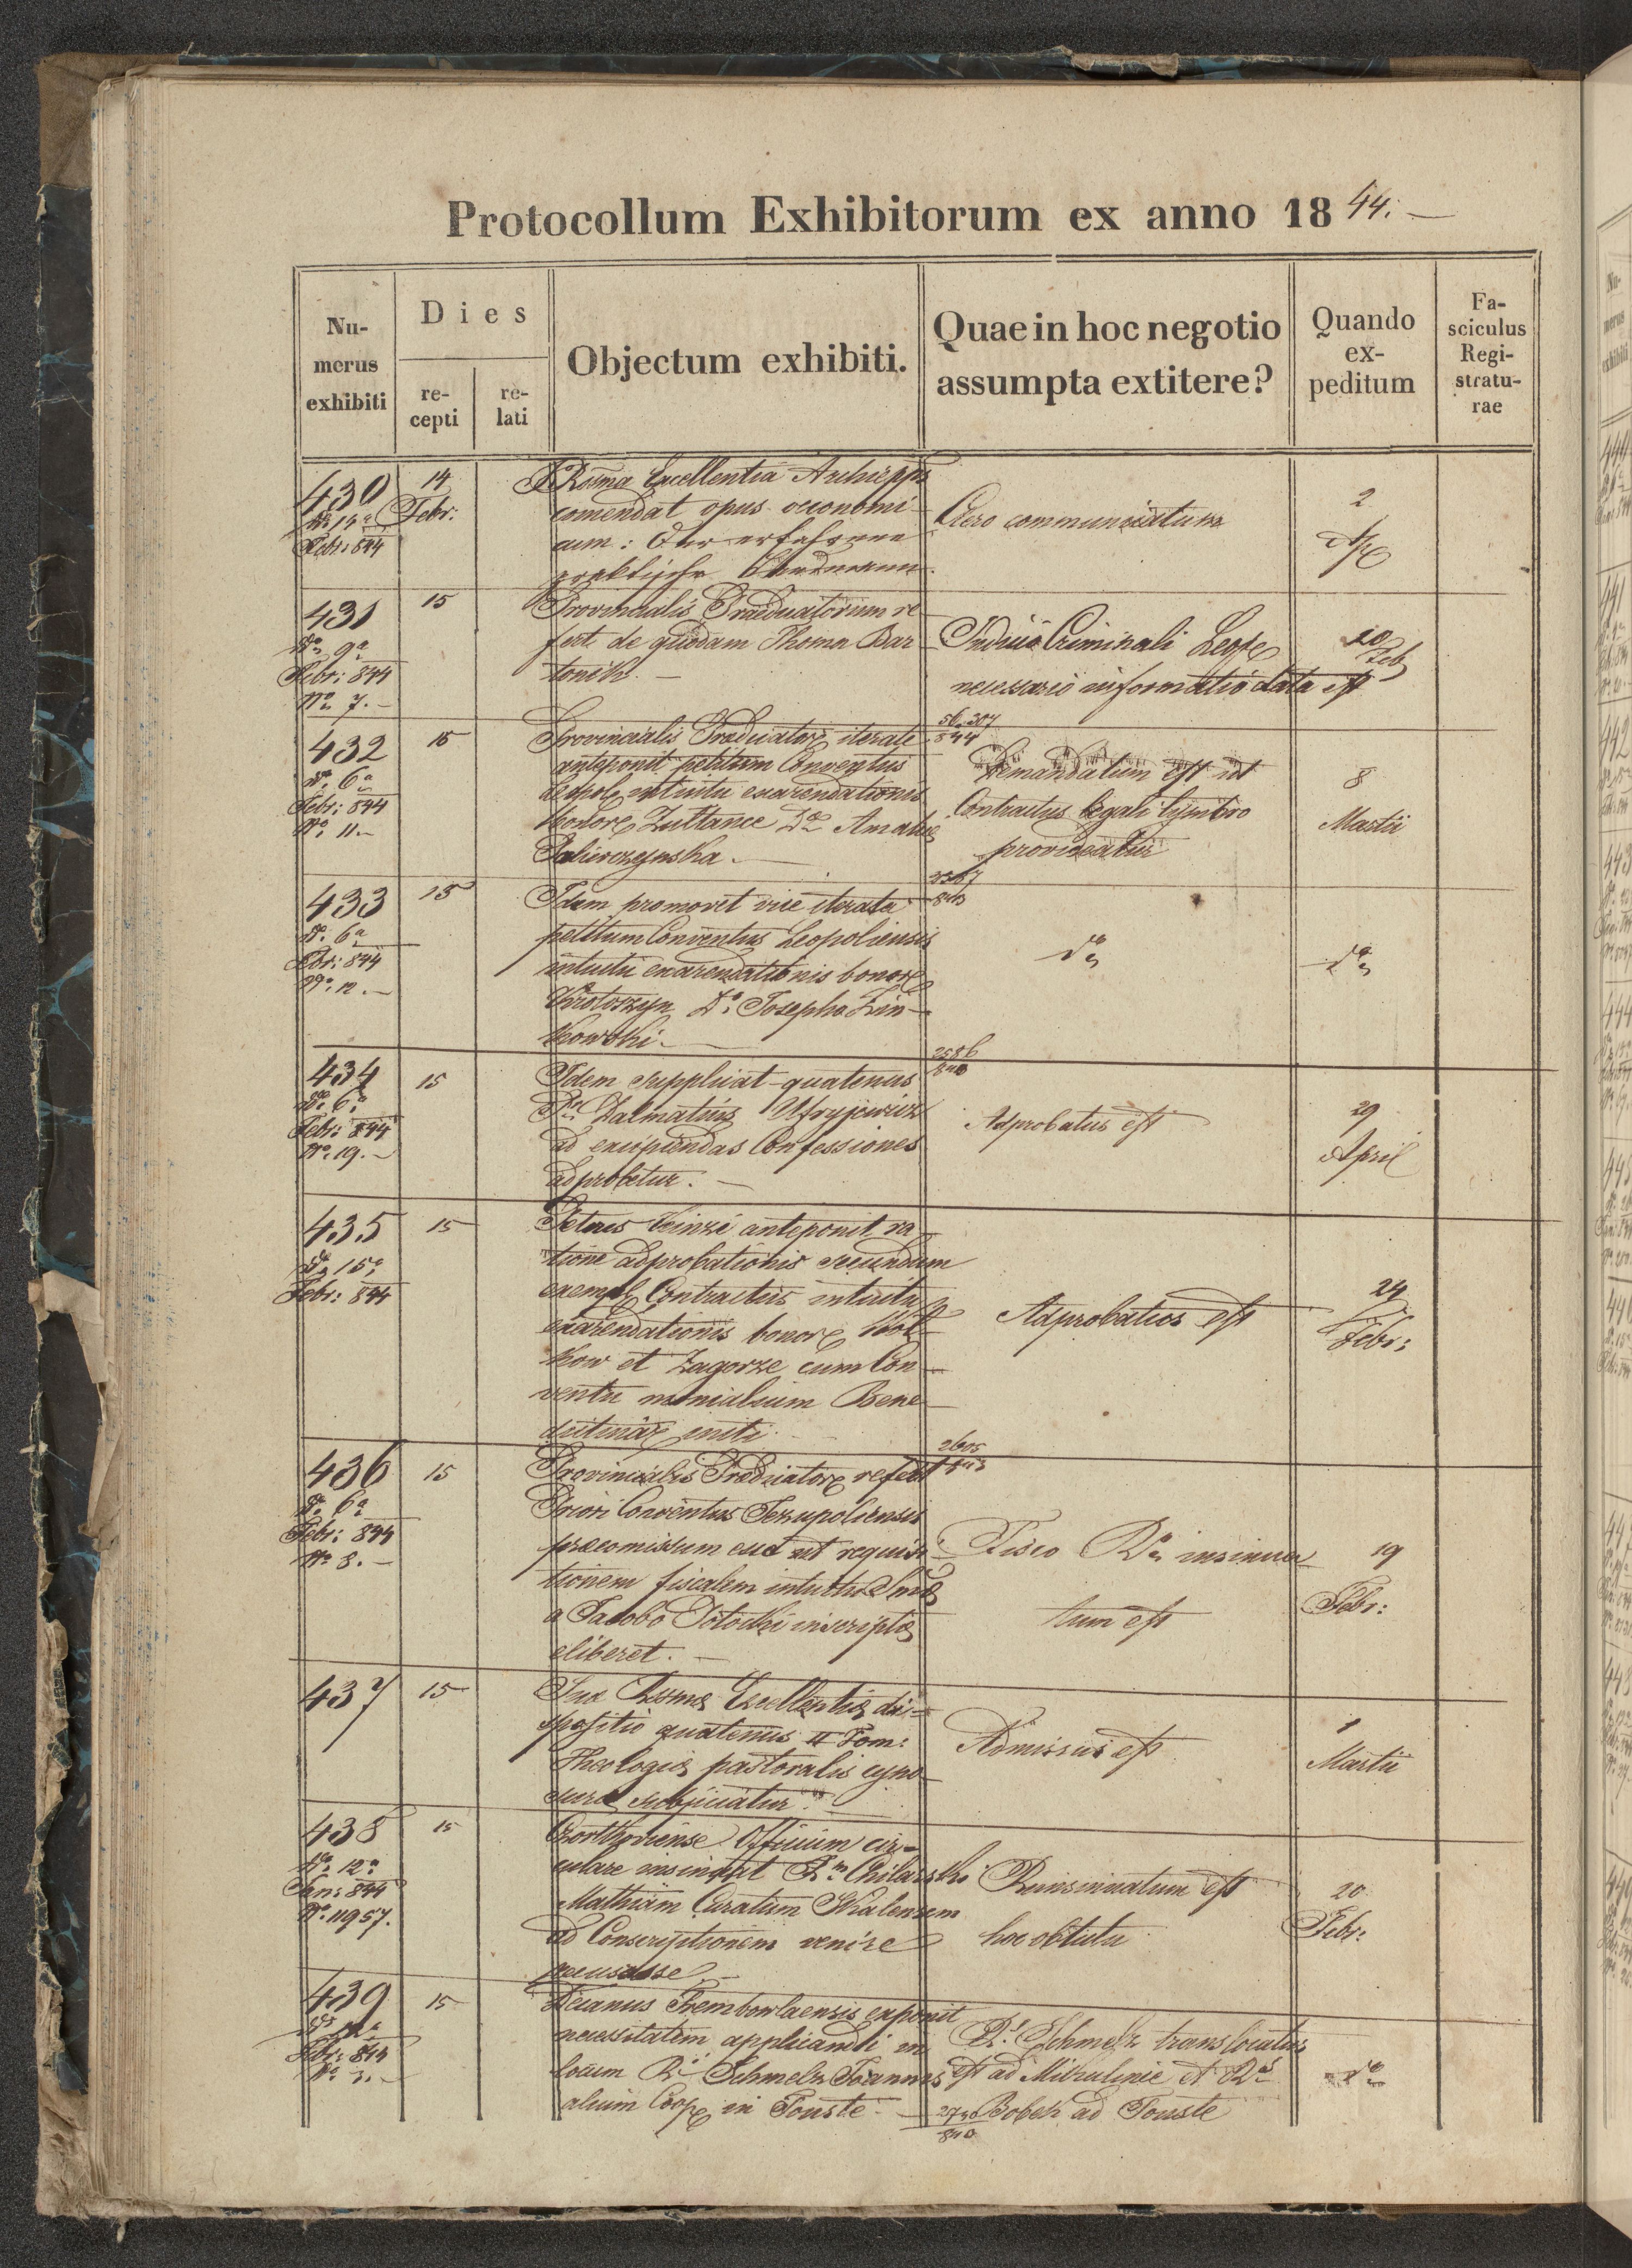 Protocollum Exhibitorum ex anno 1844.
Numerus exhibiti
Dies
recepti
relati
Objectum exhibiti.
Quae in hoc negotio assumpta extitere?
Quando expeditum
Fasciculus Registraturae
430
14 Febr:
Febr: 844
Excellentia Archiepps
comendat opus oeconomi
cum: Der erfahrene
praktische
Clero communicatum
2
431
15
dto 9a
Febr: 844
No 7.
Provincialis Praedicatorum re
fert de quodam Thoma Bar
tonik.
Judicio Criminali Leop
necessario informatio data est
20 Feb
432
15
dto 6a
Febr: 844
No 11.
Provincialis Praedicator iterate
anteponit petitum Conventus
Leopol intuitu exarendationis
bonor Zuttance Amaliae
56.207
844
Demandatum est ut
Contractus legali
provideatur
8
Martii
433
15
dto 6a
Febr: 844
No 12.
Idem promovet vice iterata
petitum Conventus Leopoliensis
intuitu exarendationis bonor
Krotoszyn Do Josepho Zin
kowski.
843
dto
dto
434
15
dto 6a
Febr: 844
No 19.
Idem supplicat quatenus
Dalmatius
ad excipiendas Confessiones
adprobetur.
2586
843
Adprobatus est
29
April
435
15
dto 15a
Febr: 844
Petrus anteponit ra
tione adprobationis secundum
exempl Contractus intuitu
exarendationis bonor
kow et Zagorze cum Con
ventu monialium Bene
dictinar initi.
Adprobatus est
24
Febr:
436
15
dto 6a
Febr: 844
No 8.
Provincialis Praedicator refert
Priori Conventus Jezupoliensis
praecomissum esse ut requisi
tionem fiscalem intuitu
a Jacobo Potocki inscriptae
eliberet.
2605
843
Fisco insinua
tum est
19
Febr:
437
15
Suae Excellentiae di
spositio quatenus II Tom:
Theologiae pastoralis cyno
surae subjiciatur
Admissus est
1
Martii
438
15
dto 12a
Jan: 844
No 11957.
Czortkoviense Officium cir
culare insinuat
Mathiam Curatum Skalensem
ad Conscriptionem venire
recusasse
Reinsinuatum est
hoc obtutu
20
Febr:
439
15
Febr: 844
Decanus Trembowlaensis exponit
necessitatem applicandi in
locum Schmelz Joannis
alium Coop in Touste.
Schmelz translocatus
est ad Mikulince et
Bobek ad Touste
dto